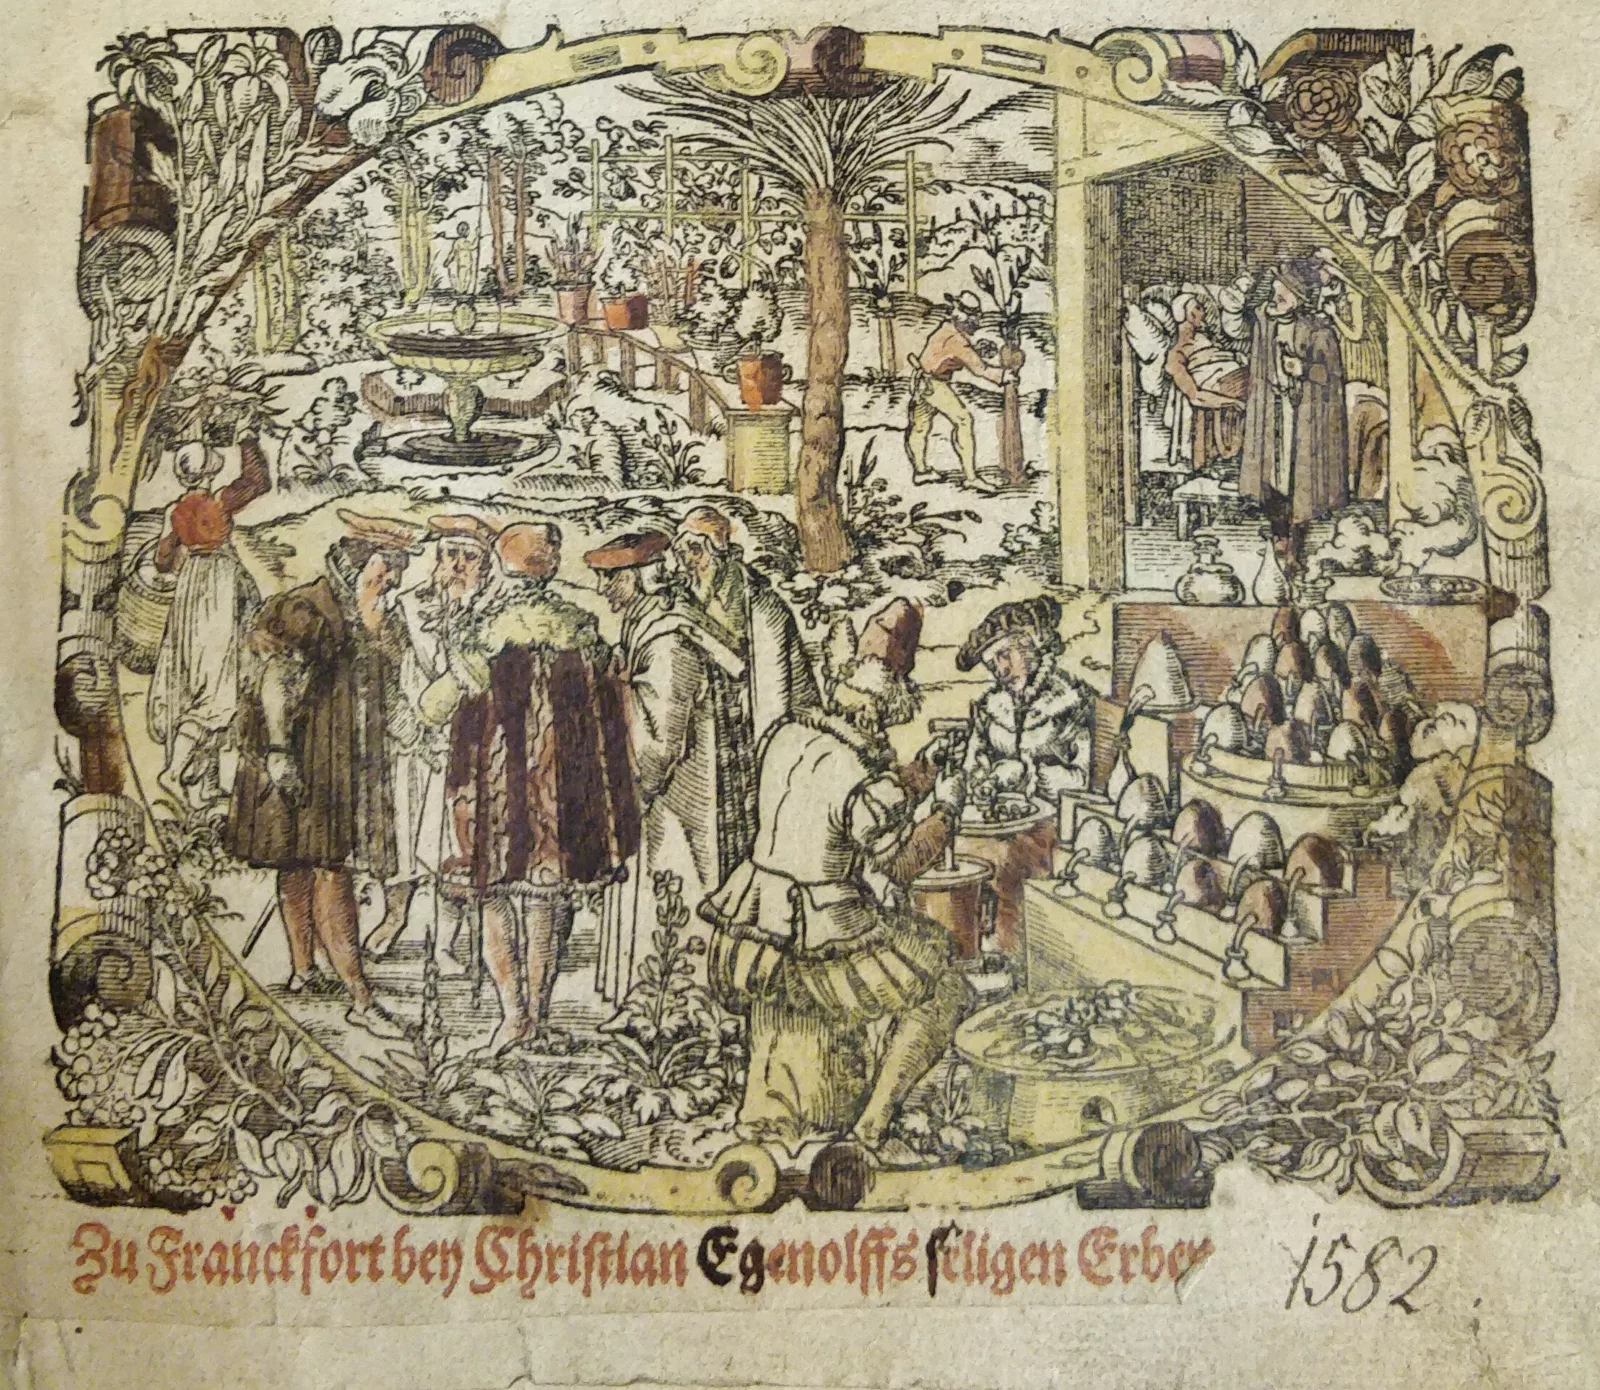 Zu Franckfort bey Christian Egenolffs seligen Erben 1582.